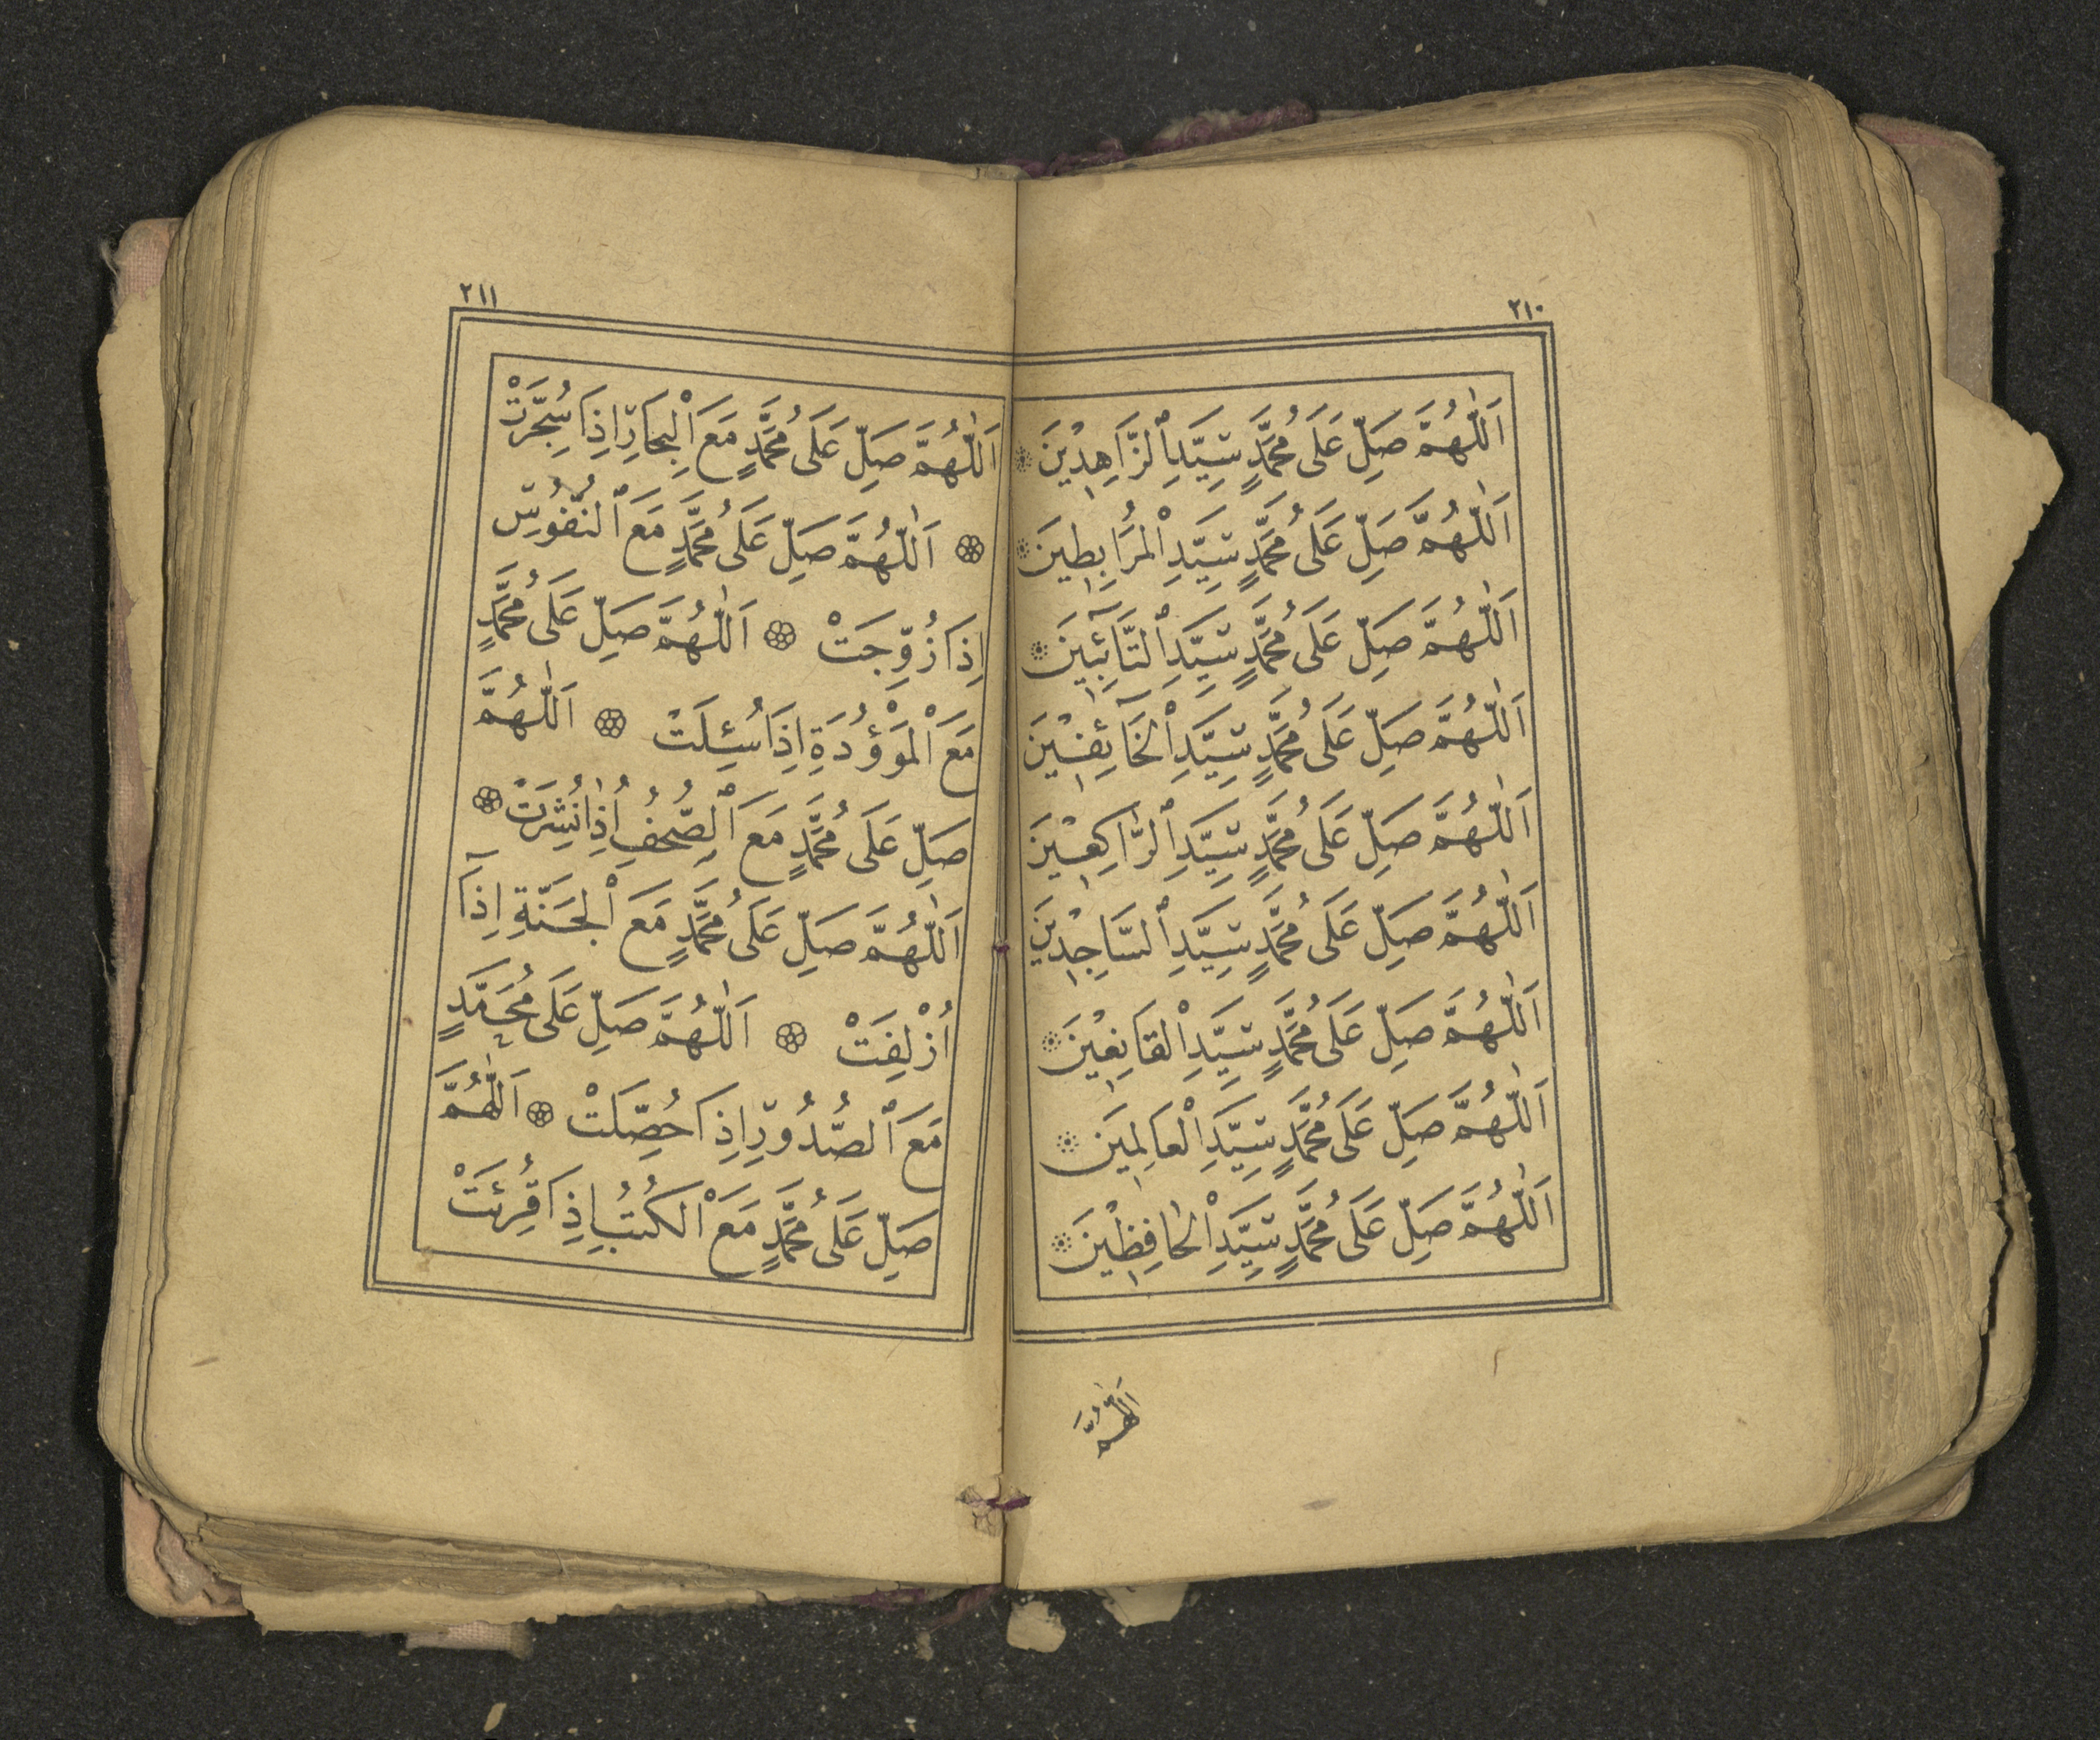 ٢١٠
اَللّٰهُمَّ صَلِّ عَلَى مُحَمَّدٍ سَيِّدِ ٱلزَّاهِدِيْنَ
اَللّٰهُمَّ صَلِّ عَلَى مُحَمَّدٍ سَيِّدِ ٱلْمُرَابِطِينَ
اَللّٰهُمَّ صَلِّ عَلَى مُحَمَّدٍ سَيِّدِ ٱلتَّآئِبِينَ
اَللّٰهُمَّ صَلِّ عَلَى مُحَمَّدٍ سَيِّدِ ٱلْخَآئِفِيْنَ
اَللّٰهُمَّ صَلِّ عَلَى مُحَمَّدٍ سَيِّدِ ٱلرَّاكِعِيْنَ
اَللّٰهُمَّ صَلِّ عَلَى مُحَمَّدٍ سَيِّدِ ٱلسَّاجِدِيْنَ
اَللّٰهُمَّ صَلِّ عَلَى مُحَمَّدٍ سَيِّدِ ٱلْقَانِعِيْنَ
اَللّٰهُمَّ صَلِّ عَلَى مُحَمَّدٍ سَيِّدِ ٱلْعَالِمِينَ
اَللّٰهُمَّ صَلِّ عَلَى مُحَمَّدٍ سَيِّدِ ٱلْحَافِظِيْنَ
اَللّٰهُمَّ
٢١١
اَللّٰهُمَّ صَلِّ عَلَى مُحَمَّدٍ مَعَ ٱلْبِحَارِ اِذَا سُجِّرَتْ
اَللّٰهُمَّ صَلِّ عَلَى مُحَمَّدٍ مَعَ ٱلنُّفُوسِ
اِذَا زُوِّجَتْ اَللّٰهُمَّ صَلِّ عَلَى مُحَمَّدٍ
مَعَ ٱلْمَوْؤُدَةِ اِذَا سُئِلَتْ اَللّٰهُمَّ
صَلِّ عَلَى مُحَمَّدٍ مَعَ ٱلصُّحُفِ اِذَا نُشِرَتْ
اَللّٰهُمَّ صَلِّ عَلَى مُحَمَّدٍ مَعَ ٱلْجَنَّةِ اِذَآ
اُزْلِفَتْ اَللّٰهُمَّ صَلِّ عَلَى مُحَمَّدٍ
مَعَ ٱلصُّدُورِ اِذَا حُصِّلَتْ اَللّٰهُمَّ
صَلِّ عَلَى مُحَمَّدٍ مَعَ ٱلْكُتُبِ اِذَا قُرِئَتْ